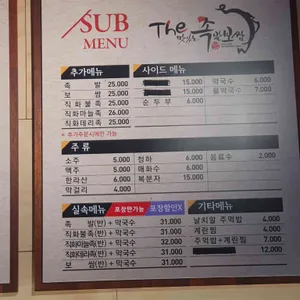 SUB
MENU
The
족
추가메뉴
족 발 25.000
보 쌈 25.000
직화불족 25.000
직화마늘족 26.000
직화데리족 25.000
* 추가주문시에만 가능
사이드 메뉴
15.000
15.000
순두부 6.000
막국수 6.000
물막국수 7.000
주 류
소주 5.000
맥주 5.000
한라산 6.000
막걸리 4.000
청하 6.000
매화수 6.000
복분자 15.000
음료수 2.000
실속메뉴 포장만가능 포장할인X
족 발(반) + 막국수 31.000
직화불족(반) + 막국수 31.000
직화마늘족(반) + 막국수 32.000
직화데리족(반) + 막국수 31.000
보 쌈(반) + 막국수 31.000
기타메뉴
날치알 주먹밥 4.000
계란찜 4.000
주먹밥+계란찜 7.000
12.000